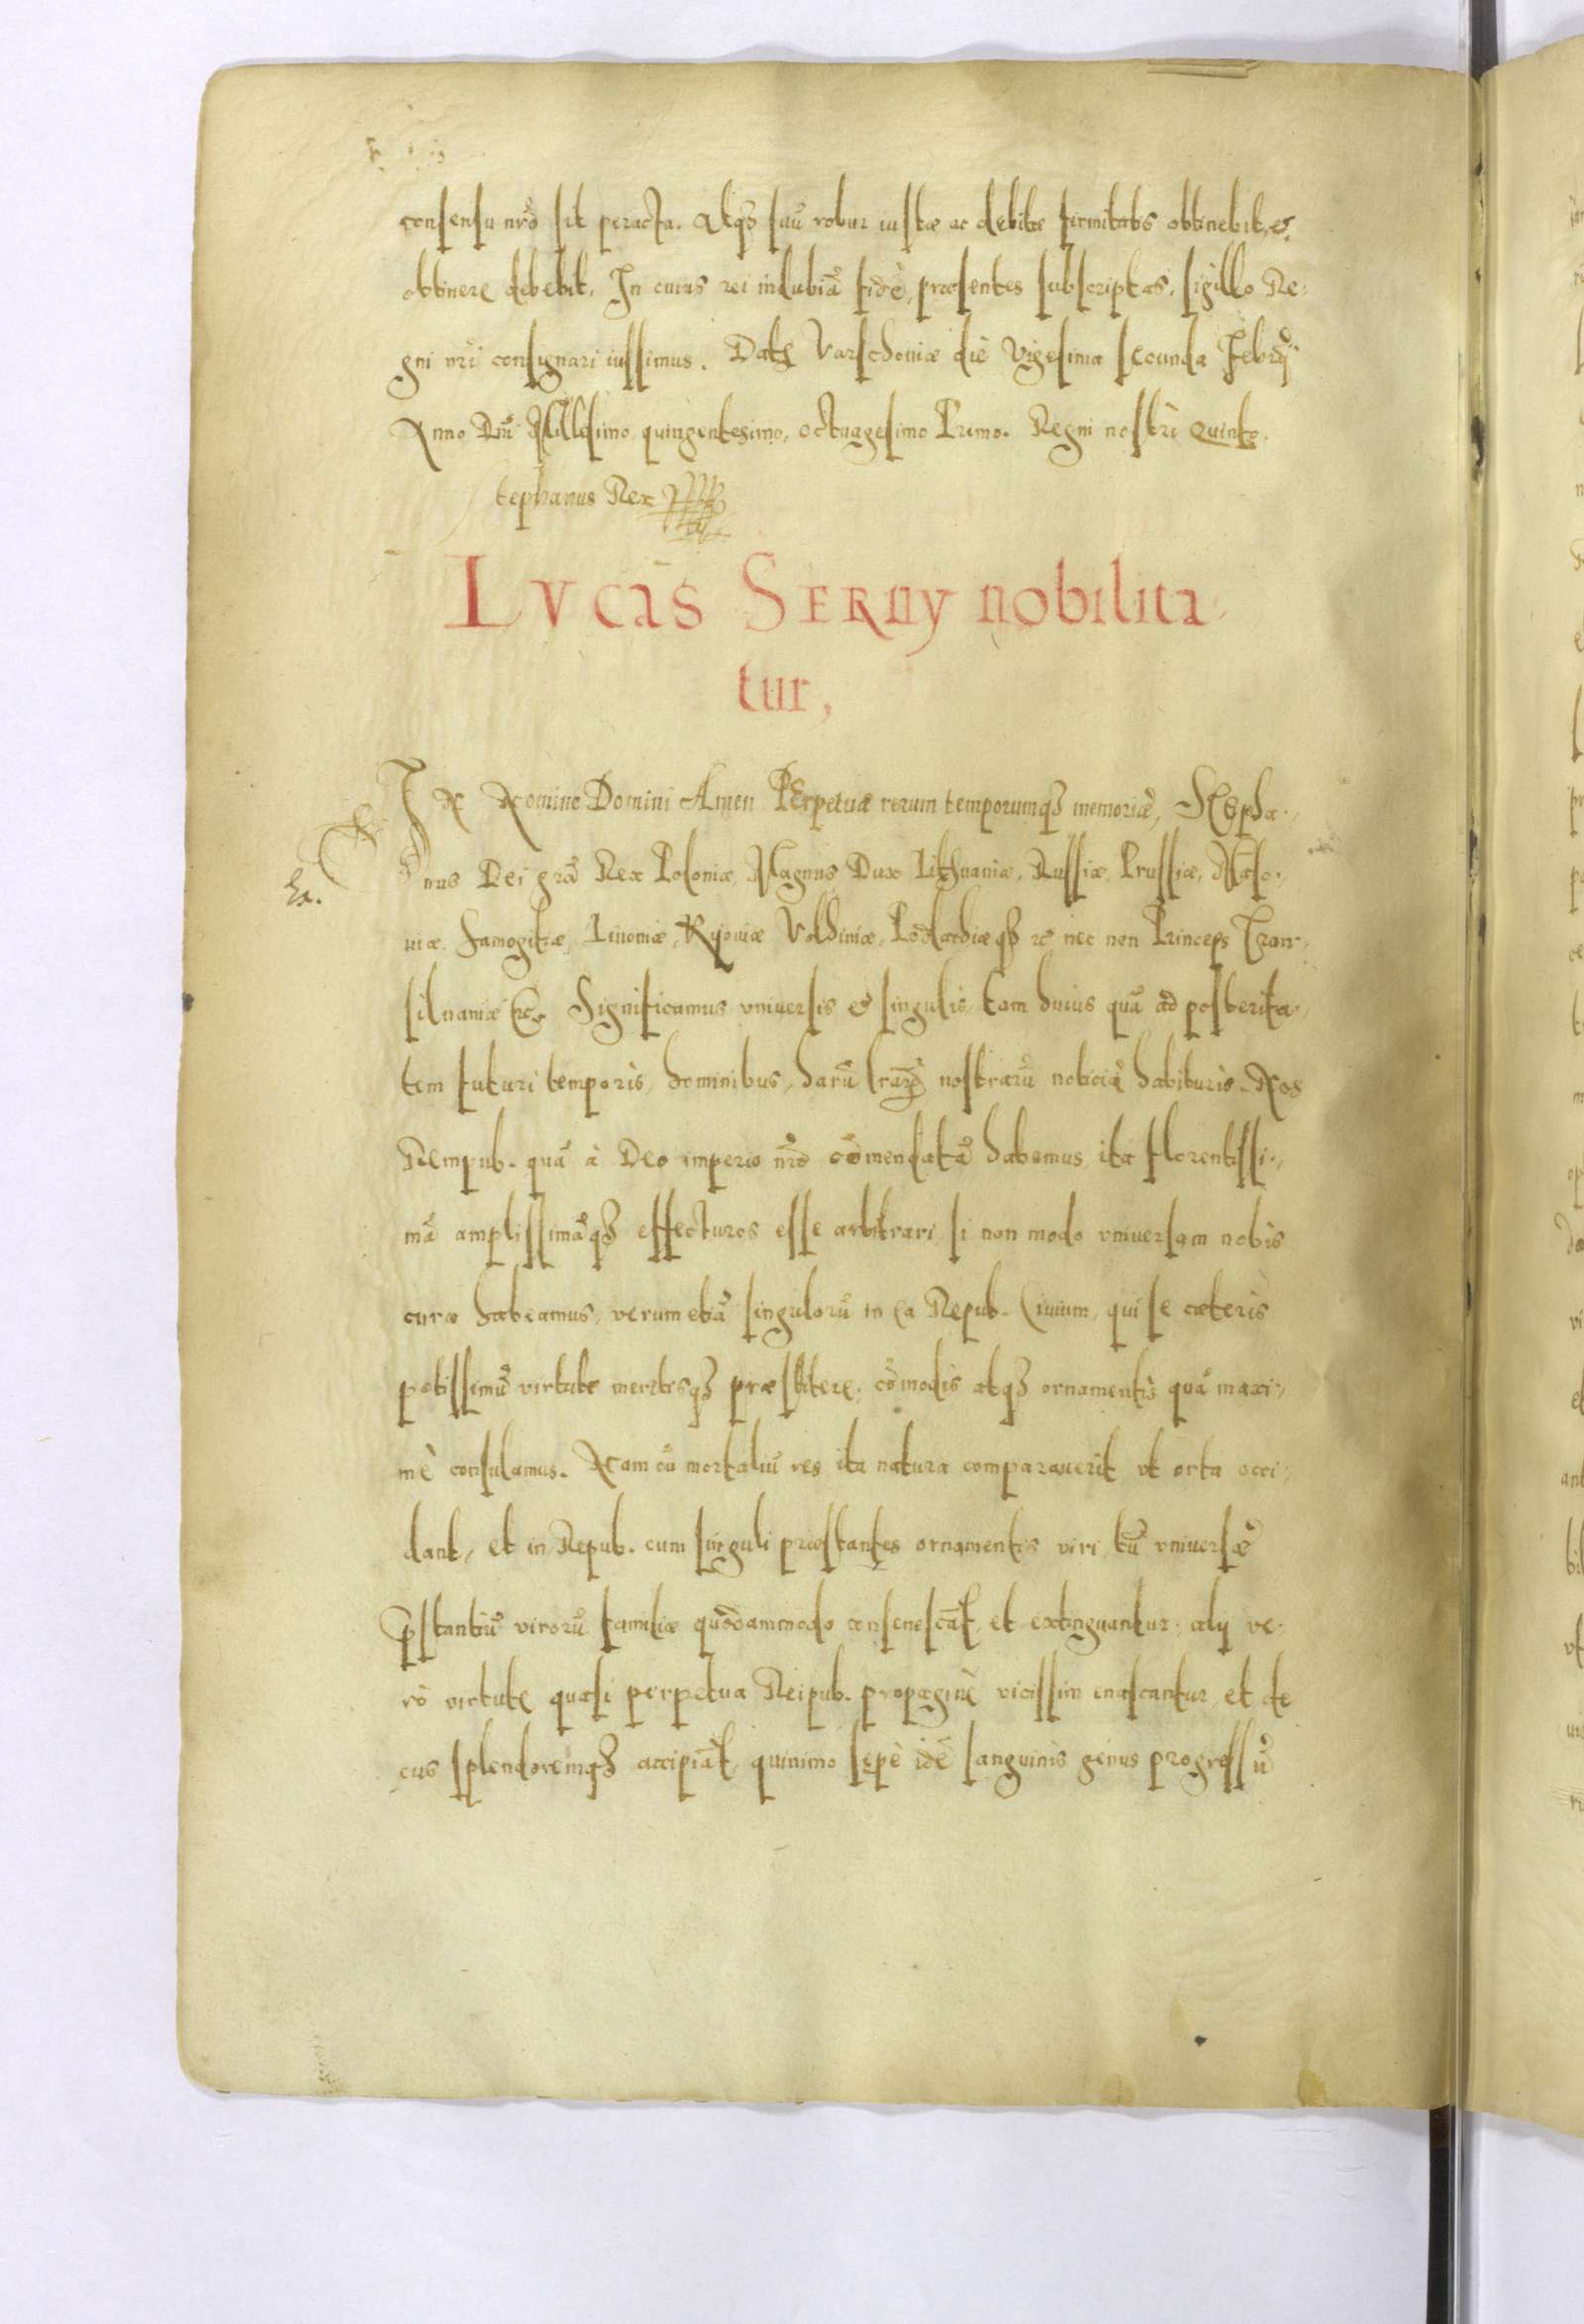 consensu nrõ sit peracta. Atqз suũ robur iustæ ac debitæ firmitatis obtinebit, &
obtinere debebit. In cuius rei indubiã fidẽ, præsentes subscriptas, sigillo Re-
gni nri consignari iussimus. Datę Varschouiæ die Vigesima secunda Februarij
Anno Dni Millesimo quingentesimo, octuagesimo Primo. Regni nostri Quinto.
Stephanus Rex
LVCAS SERNY nobilita-
tur,
IN Nomine Domini Amen Perpetuæ rerum temporumqз memoriæ, Stepha-
nus Dei grã Rex Poloniæ, Magnus Dux Lithuaniæ, Russiæ, Prussiæ, Maso-
uiæ, Samogitiæ, Liuoniæ, Kyouiæ Volhiniæ, Podlachiæqз &c nec non Princeps Tran-
siluaniæ &c. Significamus vniuersis & singulis, tam huius quã ad posterita-
tem futuri temporis, hominibus, harũ lrarũ nostrarũ noticiã habituris. Nos
Rempub. quã à Deo imperio nrõ cõmendatã habemus ita florentissi-
mã amplissimãqз effecturos esse arbitrari, si non modo vniuersam nobis
curæ habeamus, verum etiã singulorũ in ea Repub. Ciuium, qui se cæteris
potissimũ virtute meritisqз præstitere, cõmodis atqз ornamentis quã maxi-
mè consulamus. Nam cũ mortaliũ res ita natura comparauerit vt orta occi-
dant, et in Repub. cum singuli præstantes ornamentis viri, tũ vniuersæ
pstantiũ virorũ familiæ quodammodo consenescãt, et extinguantur, alij ve-
rò virtute quasi perpetua Reipub. propagine vicissim enascantur, et de
cus splendoremqз accipiãt, quinimo sepè idẽ sanguinis genus progressũ